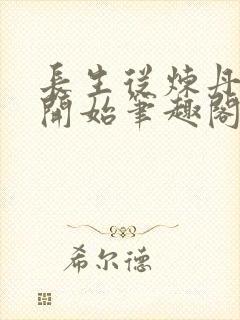 長生從煉丹
開始筆趣閣
希尔德